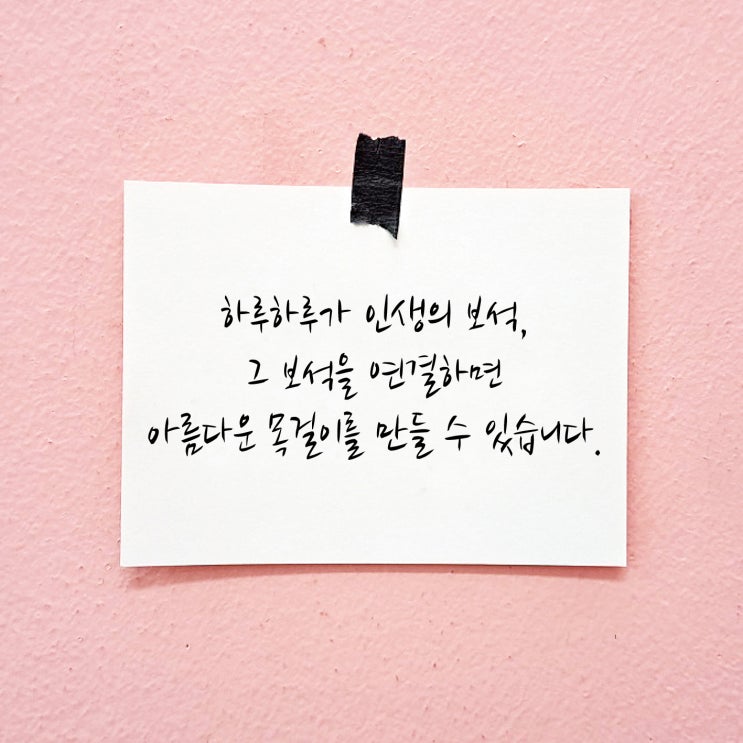 하루하루가 인생의 보석,
그 보석을 연결하면
아름다운 목걸이를 만들 수 있습니다.